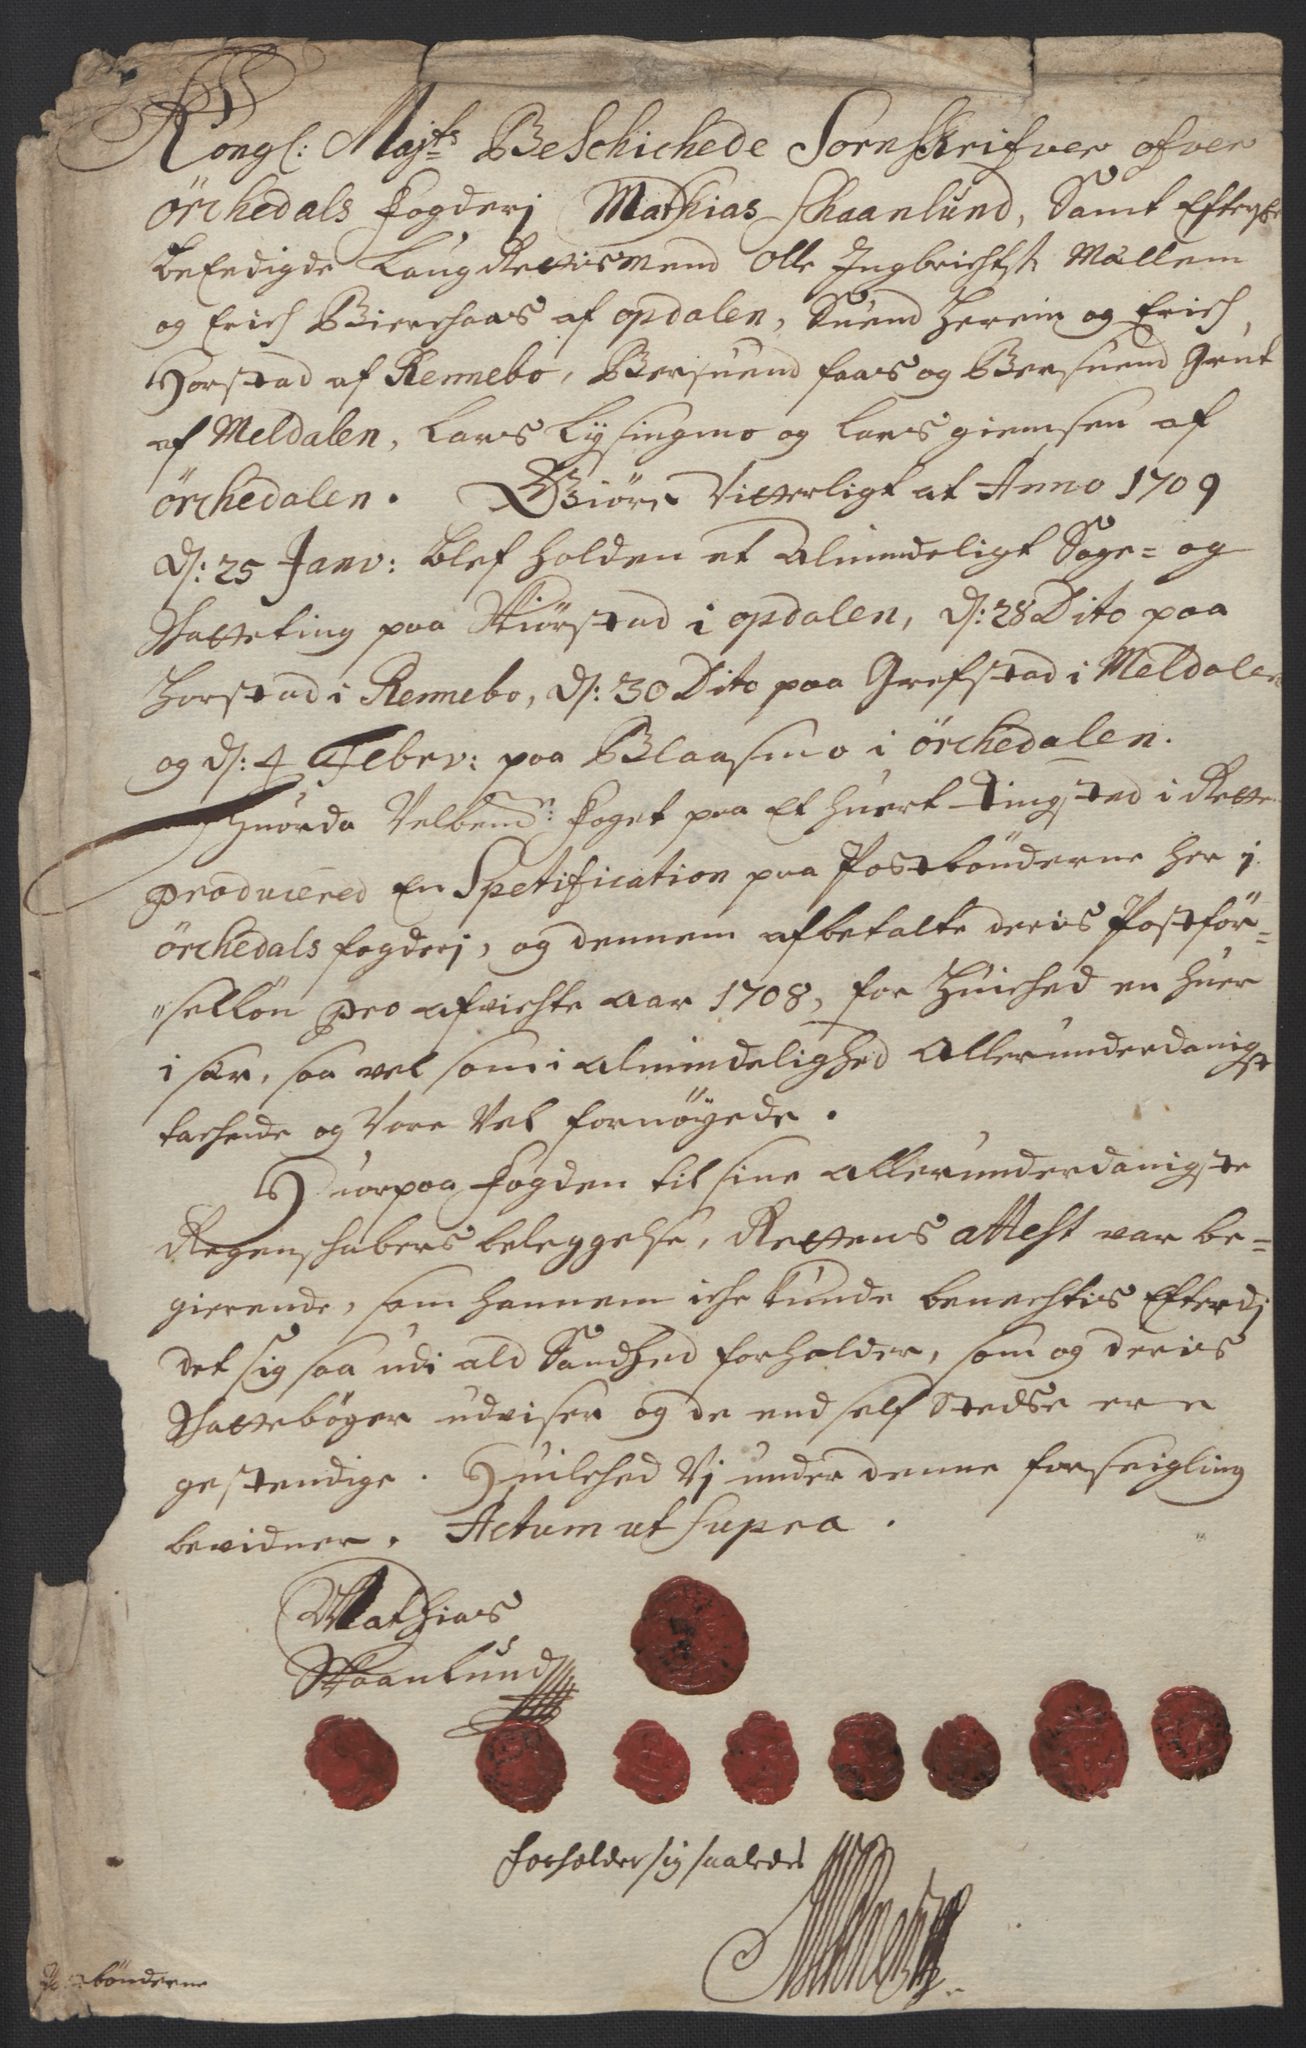 Kongl: Majts Beschichede Sorenskrifver ofver
örchedals Fogderj Mathias Skaanlund, Samt Efterschr
beEedigde Laug Rettismend Olle Ingbrichtsøn Mællem
og Erich Bierchaas af opdalen, Suend Herrem og Erich
Horstad af Rennebo, Bersuend faas og Bersuend Grut
af Meldalen, Lars Lÿsingmo og Lars giemsen af
örchedalen. Giöre Vitterligt at Anno 1709
d: 25 Janv: blef holden et Almindeligt Sage= og
Skatteting paa Stiörstad i opdalen, d: 28 Dito paa
Horstad i Rennebo, d: 30 Dito paa Grefstad i Meldalen
og d: 4 Febrv: paa Blaasmo i örchedalen.
Huorda Velbemte: Foget paa Et huert Tingsted i Rette
producered En Spetification paa Postbönderne her j
örchedals fogderj, og dennem afbetalte deris Postför=
"sellön pro afvichte Aar 1708, for Huiched en huer
i sær, saa vel som i Almindelighed Allerunderdanigst
tachede og Vare Vel fornöyede.
Huorpaa Fogden til sine Allerunderdanigste
Regenschabers beleggelse, Rettens Attest var be=
gierende, som hannem iche kunde benechtis Efterdj
det sig saa udi ald Sandhed forholder, som og deris
Skatteböger udviser og de end self Stedse ere
gestendige. Huilched Vj under denne forseigling
bevidner. Actum ut supra.
Mathias
Skaanlund
forholder sig saaledes
Postbönderne